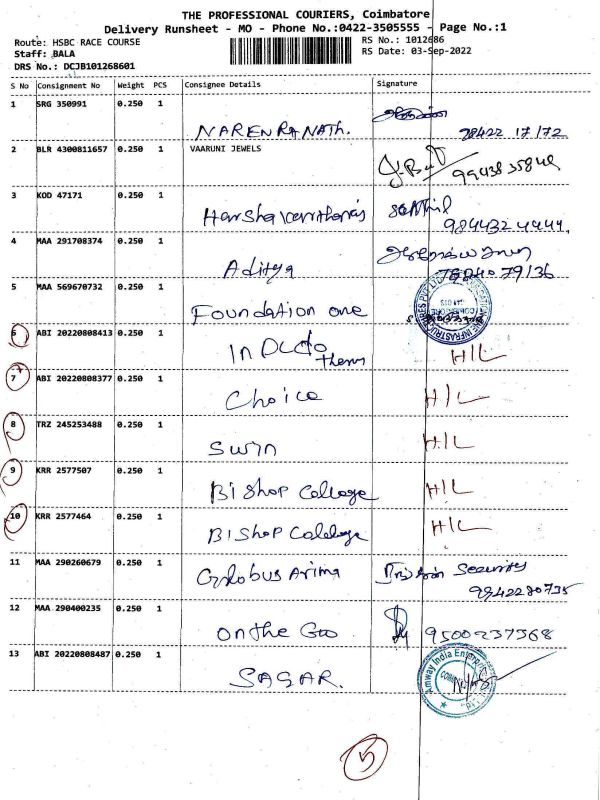 THE PROFESSIONAL COURIERS, Coimbatore
Delivery Runsheet - MO - Phone No.:0422-3505555 - Page No.:1
Route: HSBC RACE COURSE
RS No.: 1012686
Staff: BALA
RS Date: 03-Sep-2022
DRS No.: DCJB101268601
S No Consignment No Weight PCS Consignee Details Signature
1 SRG 350991 0.250 1
NARENRANATH.
2 BLR 4300811657 0.250 1 VAARUNI JEWELS
3 KOD 47171 0.250 1
4 MAA 291708374 0.250 1
Aditya
5 MAA 569670732 0.250 1
Foundation one
6 ABI 20220808413 0.250 1
H/L
7 ABI 20220808377 0.250 1
Choice H/L
8 TRZ 245253488 0.250 1
Swin H/L
9 KRR 2577507 0.250 1
Bishop College H/L
10 KRR 2577464 0.250 1
Bishop H/L
11 MAA 290260679 0.250 1
Globus Arima Security
9842280735
12 MAA 290400235 0.250 1
on the Go 9500237368
13 ABI 20220808487 0.250 1
SAGAR.
Amway India
5